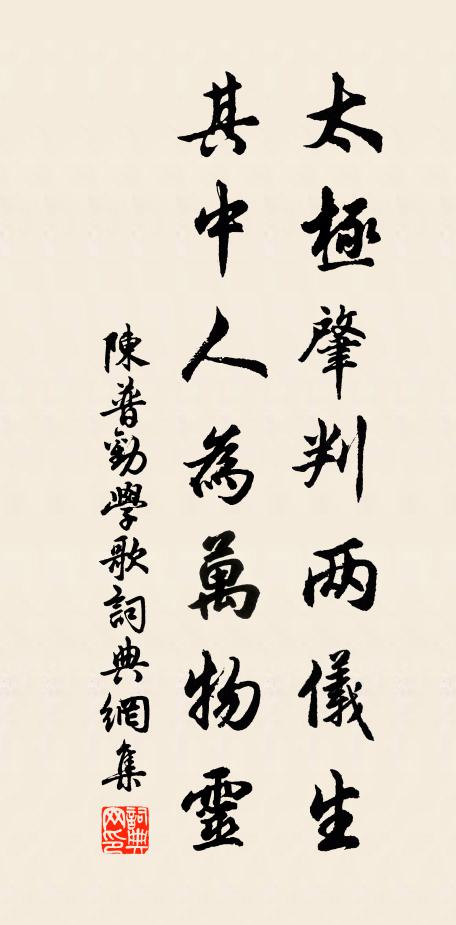 太極肇判两儀生
其中人為萬物靈
陳普勸學歌詞典網集
詞典網印